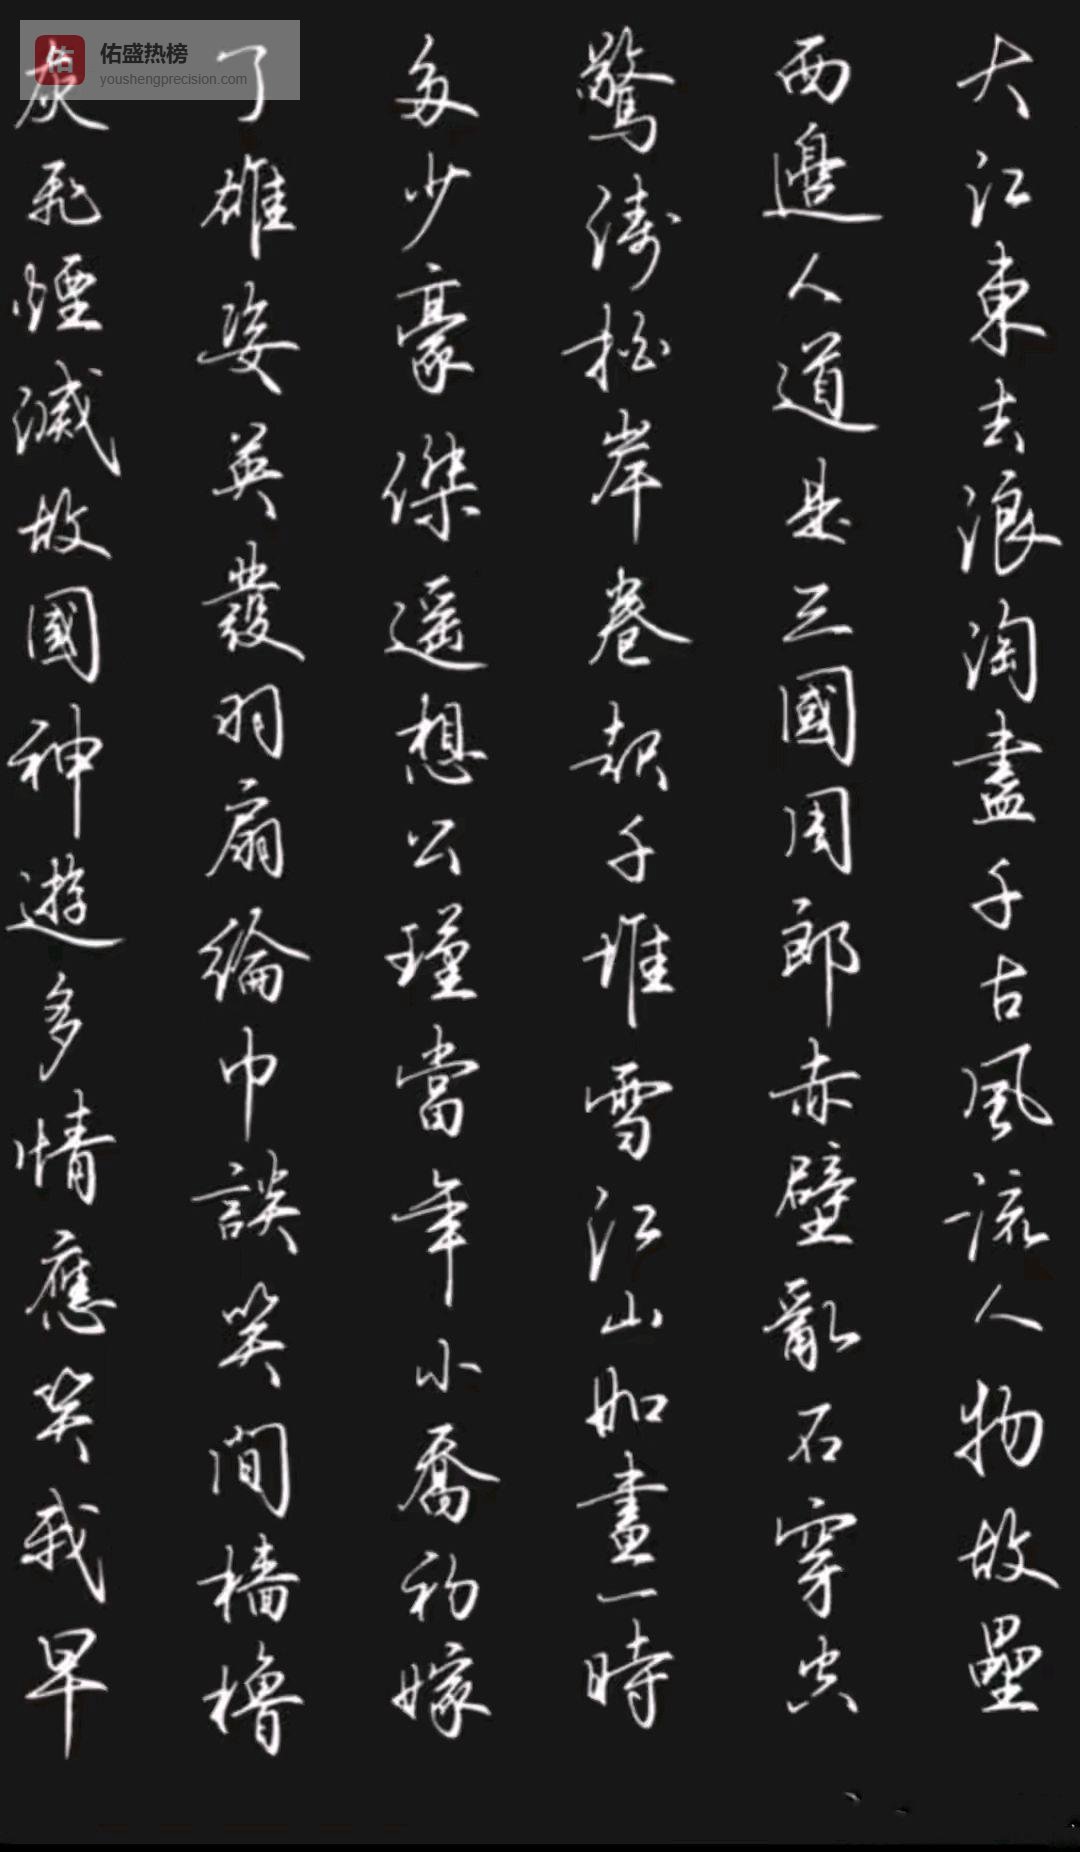 大江東去浪淘盡千古風流人物故壘
西邊人道是三國周郎赤壁亂石穿空
驚濤拍岸卷起千堆雪江山如畫一時
多少豪傑遥想公瑾當年小喬初嫁
了雄姿英發羽扇綸巾談笑間檣櫓
灰飛煙滅故國神遊多情應笑我早
佑
佑盛热榜
youshengprecision.com